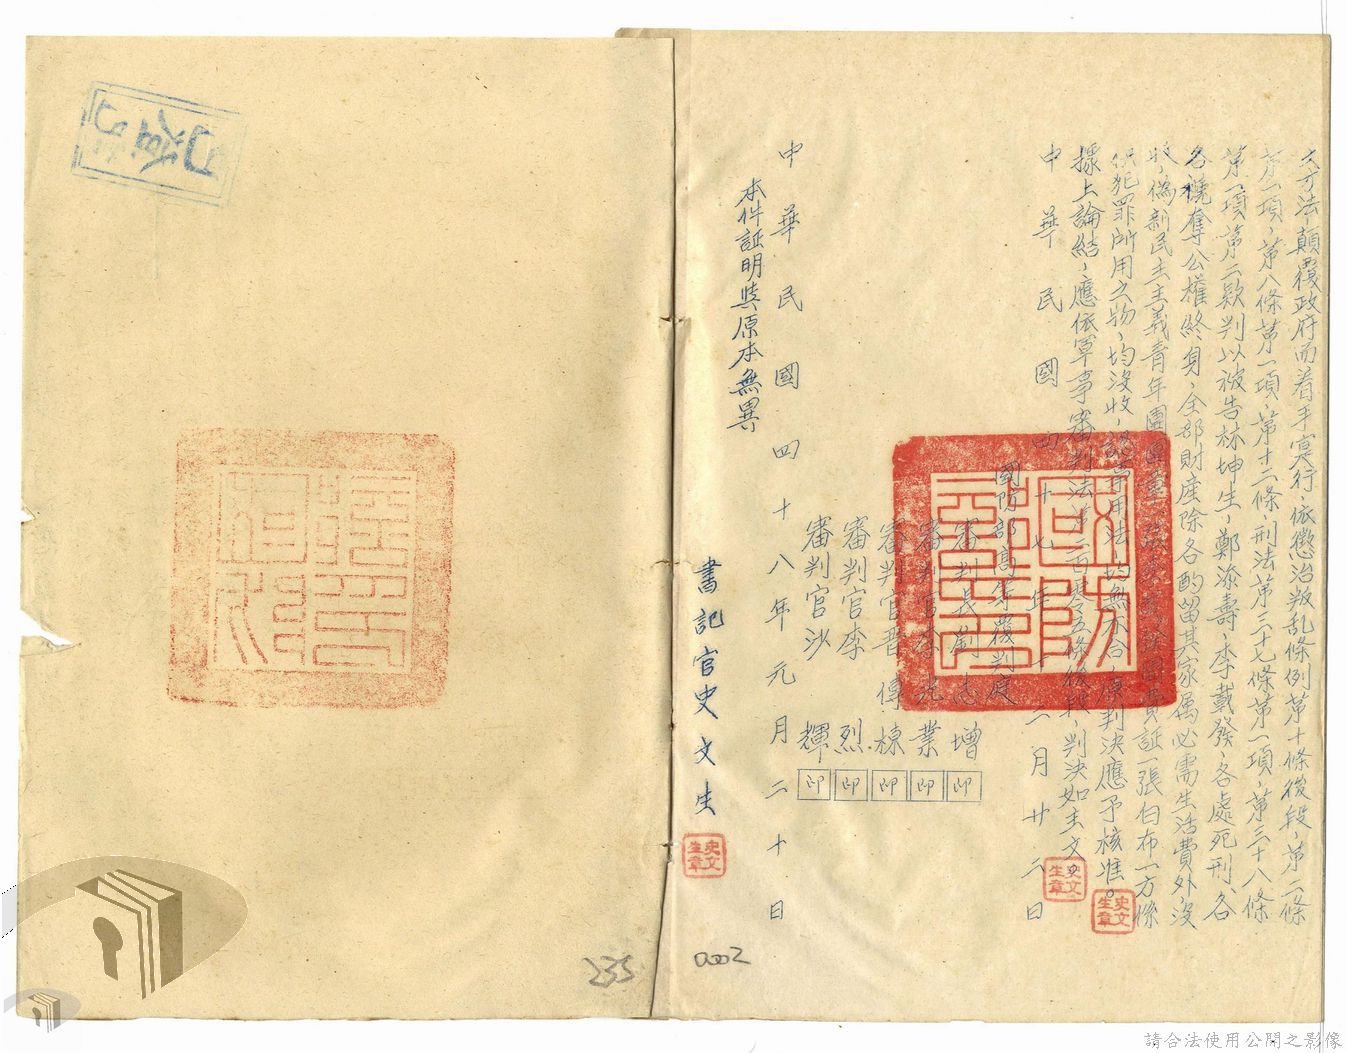 之方法顛覆政府而着手實行，依懲治叛乱條例第十條後段，第二條
第一項，第八條第一項，第十二條，刑法第三十七條第一項，第三十八條
第一項第二款判以被告林坤生，鄭添壽，李載發，各處死刑，各
各褫奪公權終身，全部財產除各酌留其家屬必需生活費外，沒
收，偽新民主主義青年團團費証一張白布一方係
供犯罪所用之物，均沒收，認事用法，均無不合，原判決應予核准。
據上論結，應依軍事審判法第二百零五條後段，判決如主文。
中華民國四十七年十二月廿二日
國防部高等覆判庭
審判長劉志增
審判官李光業
審判官晋傳棟
審判官李烈
審判官沙輝
印印印印印
中華民國四十八年元月二十日
本件証明與原本無異
書記官史文生
史文生章
史文生章
史文生章
0002
235
請合法使用公開之影像